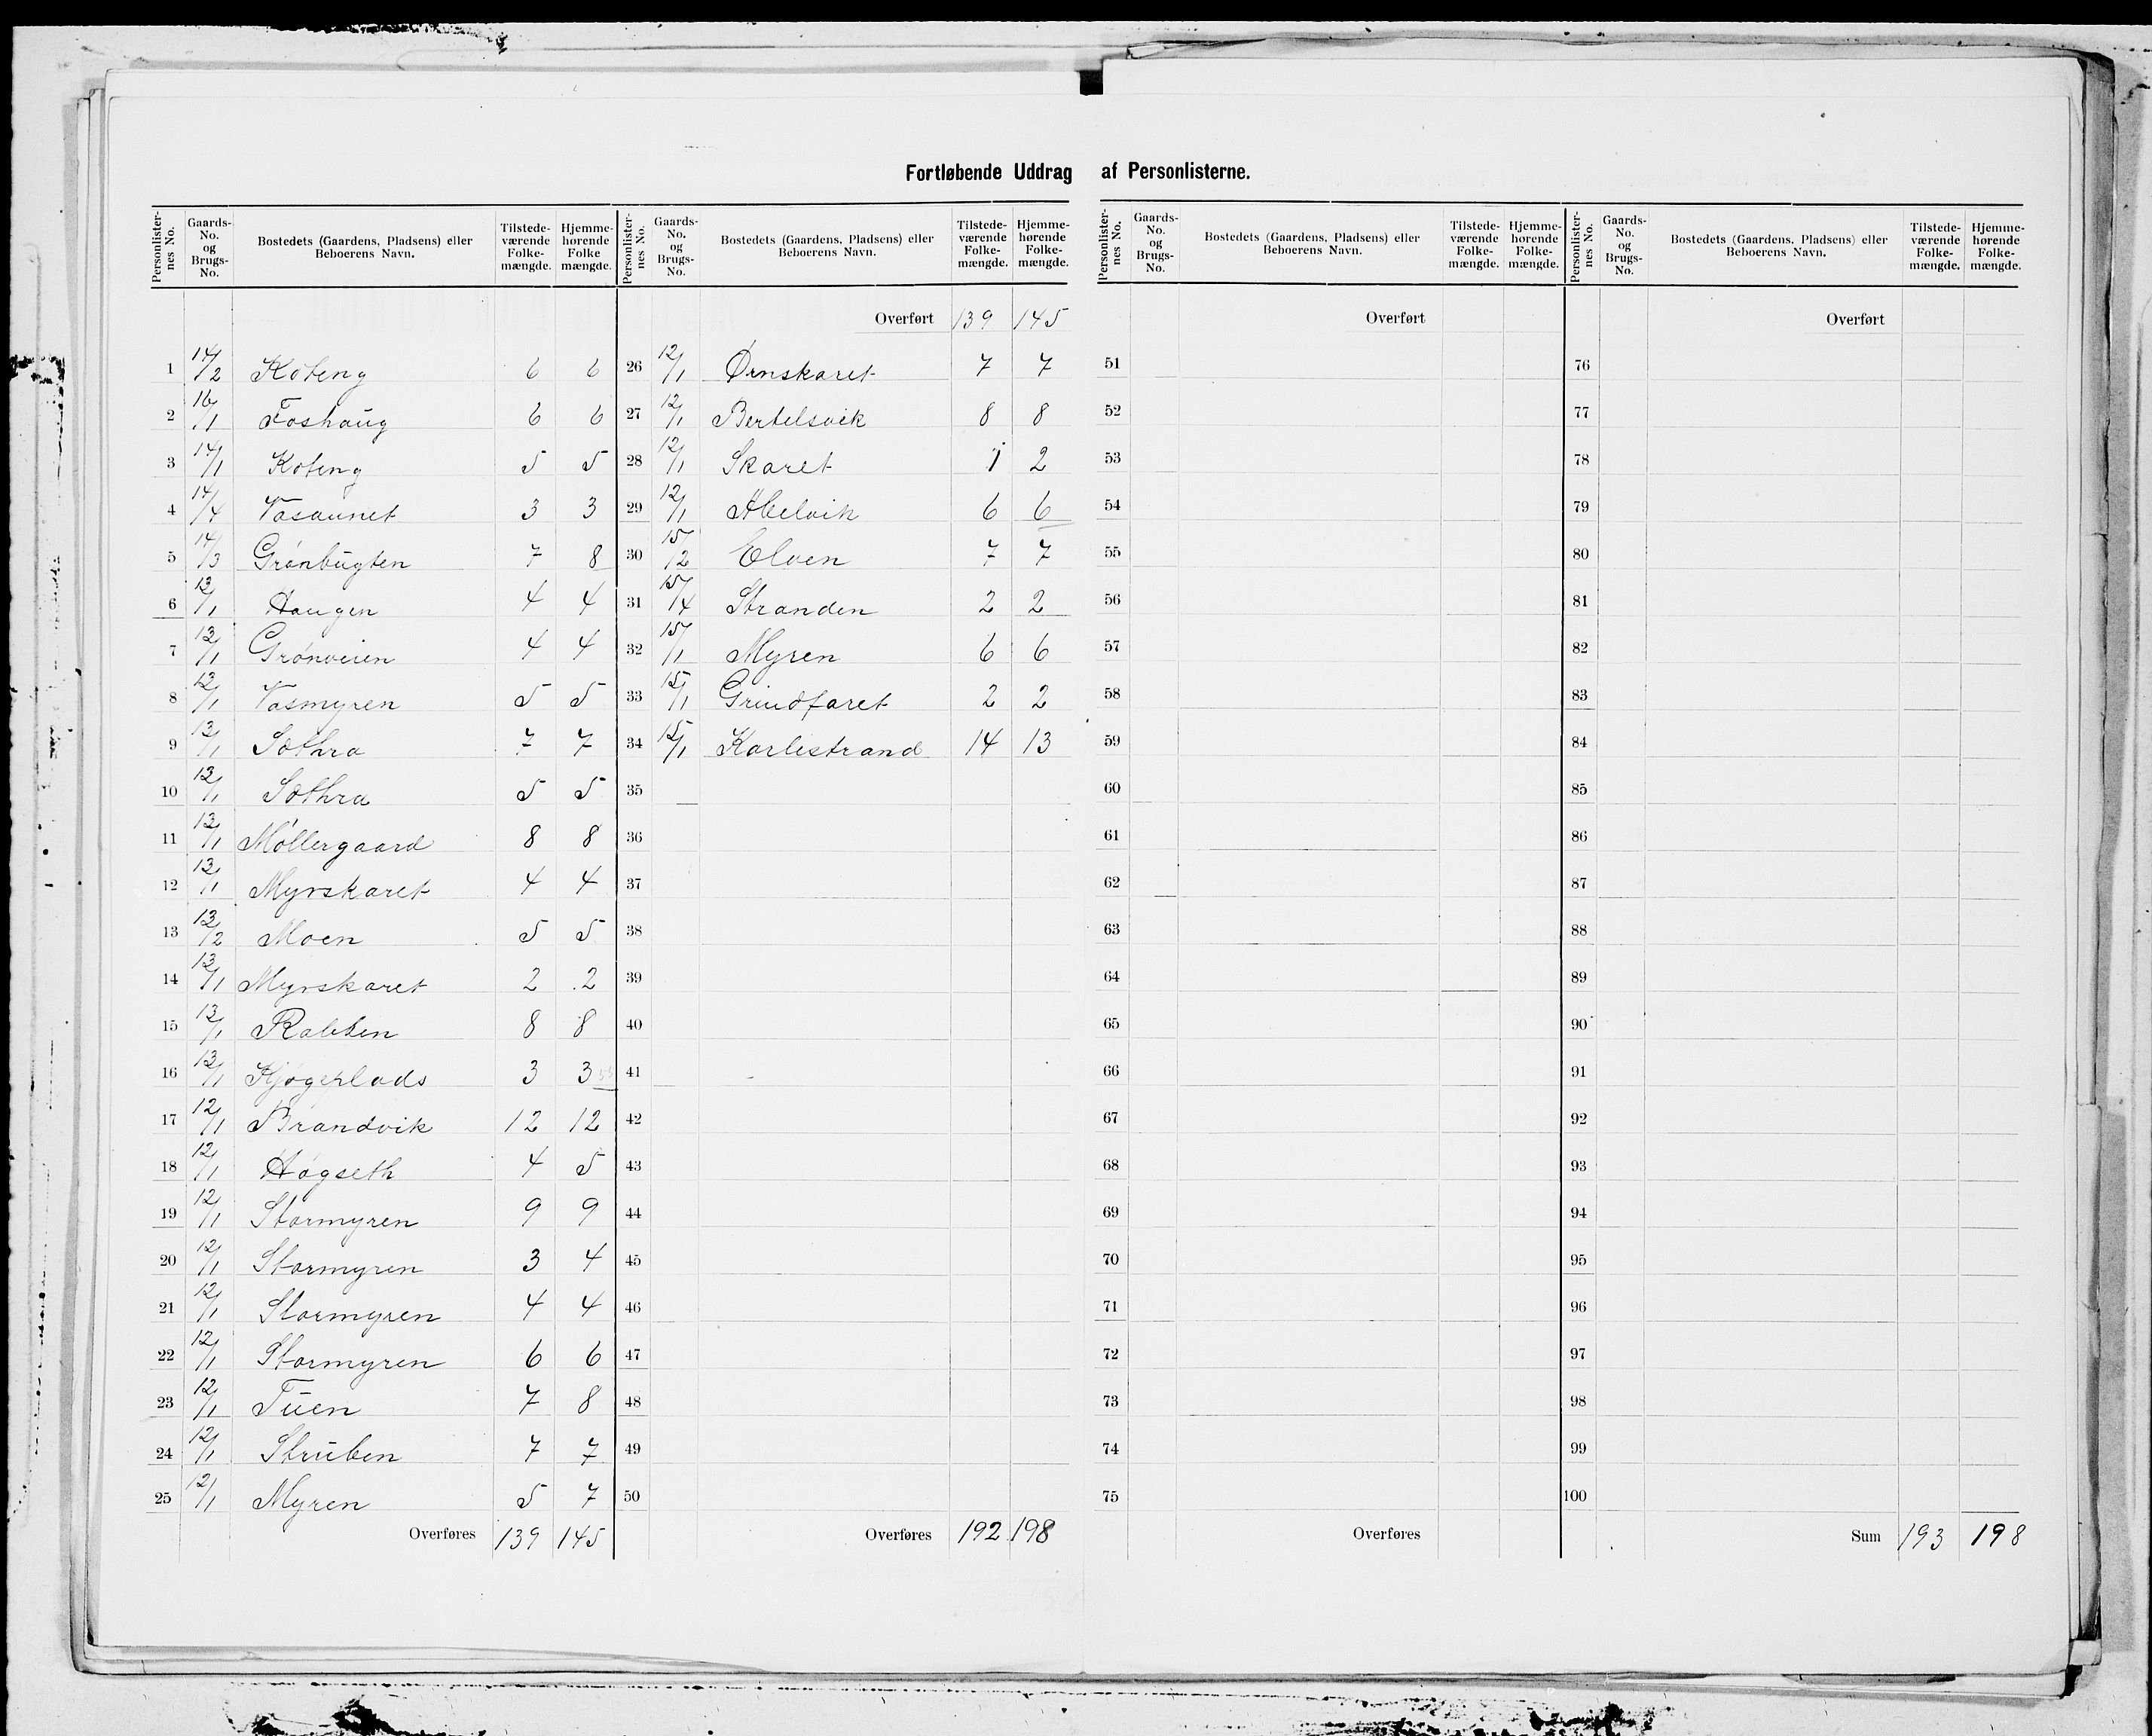 Fortløbende Uddrag af Personlisterne.
Personlisternes No. Gaards-No. og Brugs-No. Bostedets (Gaardens, Pladsens) eller Beboerens Navn. Tilstedeværende Folkemængde. Hjemmehørende Folke mængde.
1 14/2 Koteng 6 6
2 16/1 Foshaug 6 6
3 14/1 Koteng 5 5
4 14/4 Vasaunet 3 3
5 14/3 Grønbugten 7 8
6 13/1 Haugen 4 4
7 13/1 Grønveien 4 4
8 13/1 Vasmyren 5 5
9 13/1 Sæthra 7 7
10 13/1 Sæthra 5 5
11 13/1 Møllergaard 8 8
12 13/1 Myrskaret 4 4
13 13/2 Moen 5 5
14 13/1 Myrskaret 2 2
15 13/1 Rabben 8 8
16 13/1 3 3
17 12/1 Brandvik 12 12
18 12/1 Høgseth 4 5
19 12/1 Stormyren 9 9
20 12/1 Stormyren 3 4
21 12/1 Stormyren 4 4
22 12/1 Stormyren 6 6
23 12/1 Tuen 7 8
24 12/1 Struben 7 7
25 12/1 Myren 5 7
Overføres 139 145
Personlisternes No. Gaards-No. og Brugs-No. Bostedets (Gaardens, Pladsens) eller Beboerens Navn. Tilstedeværende Folkemængde. Hjemmehørende Folkemængde.
Overført 139 145
26 12/1 Ørnskaret 7 7
27 12/1 Bertelsvik 8 8
28 12/1 Skaret 1 2
29 12/1 Abelvik 6 6
30 15/2 Elven 7 7
31 15/4 Stranden 2 2
32 15/1 Myren 6 6
33 15/1 Grindfaret 2 2
34 15/1 Karlestrand 14 13
35
36
37
38
39
40
41
42
43
44
45
46
47
48
49
50
Overføres 192 198
Personlisternes No. Gaards-No. og Brugs-No. Bostedets (Gaardens, Pladsens) eller Beboerens Navn. Tilstedeværende Folkemængde. Hjemmehørende Folkemængde.
Overført
51
52
53
54
55
56
57
58
59
60
61
62
63
64
65
66
67
68
69
70
71
72
73
74
75
Overføres
Personlisternes No. Gaards-No. og Brugs-No. Bostedets (Gaardens, Pladsens) eller Beboerens Navn. Tilstedeværende Folkemængde. Hjemmehørende Folkemængde.
Overført
76
77
78
79
80
81
82
83
84
85
86
87
88
89
90
91
92
93
94
95
96
97
98
99
100
Sum 193 198